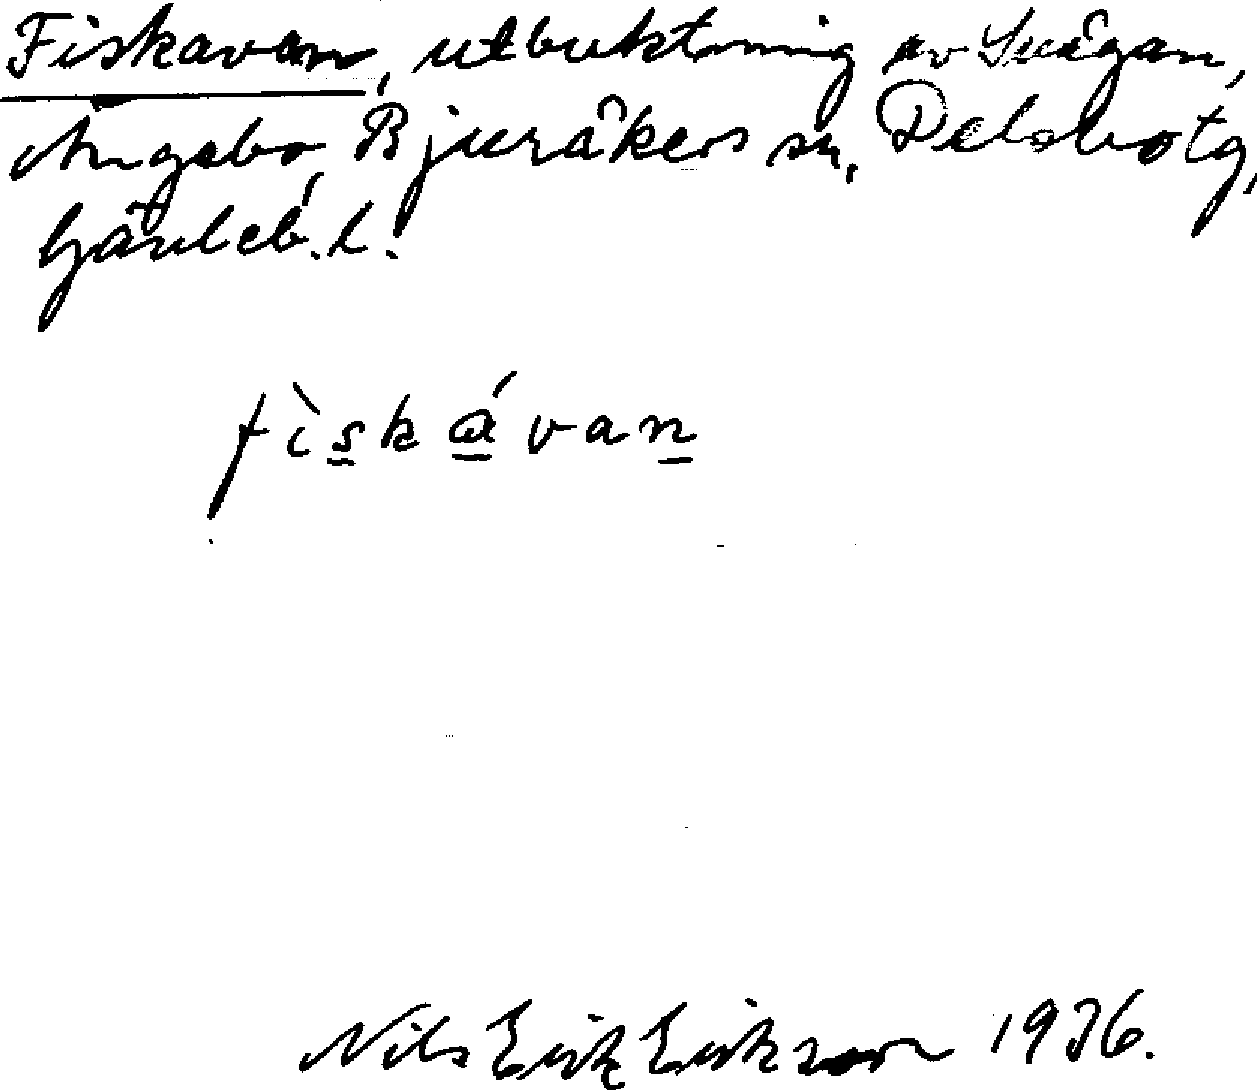 Fiskavan, utbuktning av Svågan,
Ängebo, Bjuråkers sn, Delsbo tg,
Gävleb. l.
fìskávan
Nils Erik Erikson 1936.